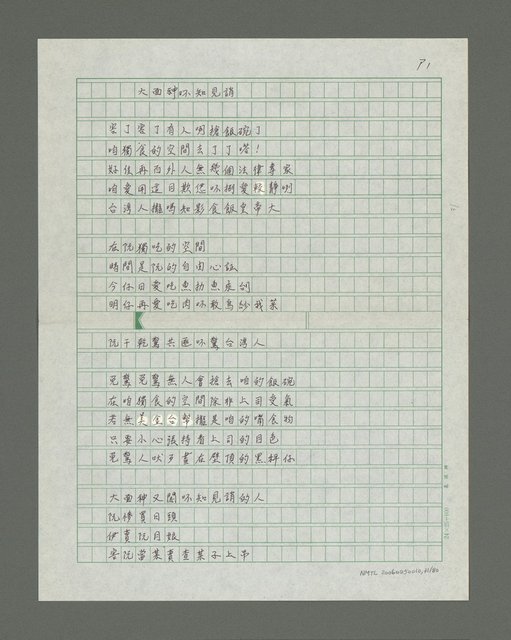 P1
大面神吥知見誚
害了害了有人唎搶飯碗了
咱獨食的空間去了了嗒!
好佳再西外人無幾個法律專家
台灣人攏嗎知影食飯皇帝大
在阮獨吃的空間
時間是阮的自由心証
今仔日愛吃魚扐魚來创
明仔再愛吃肉吥敢鳥紗我菜
阮干乾驚共匪吥驚台灣人
免驚免驚無人會搶去咱的飯碗
在咱獨食的空間除非上司受氣
若無美全台幣攏是咱的嘴食物
只要小心張持看上司的目色
免驚人吠歹畫在壁頂的黑粿仔
大面神又閣吥知見誚的人
阮掠賣日頭
伊賣阮月娘
害阮當菜賣查某子上吊
NMTL 20060050010,01/80